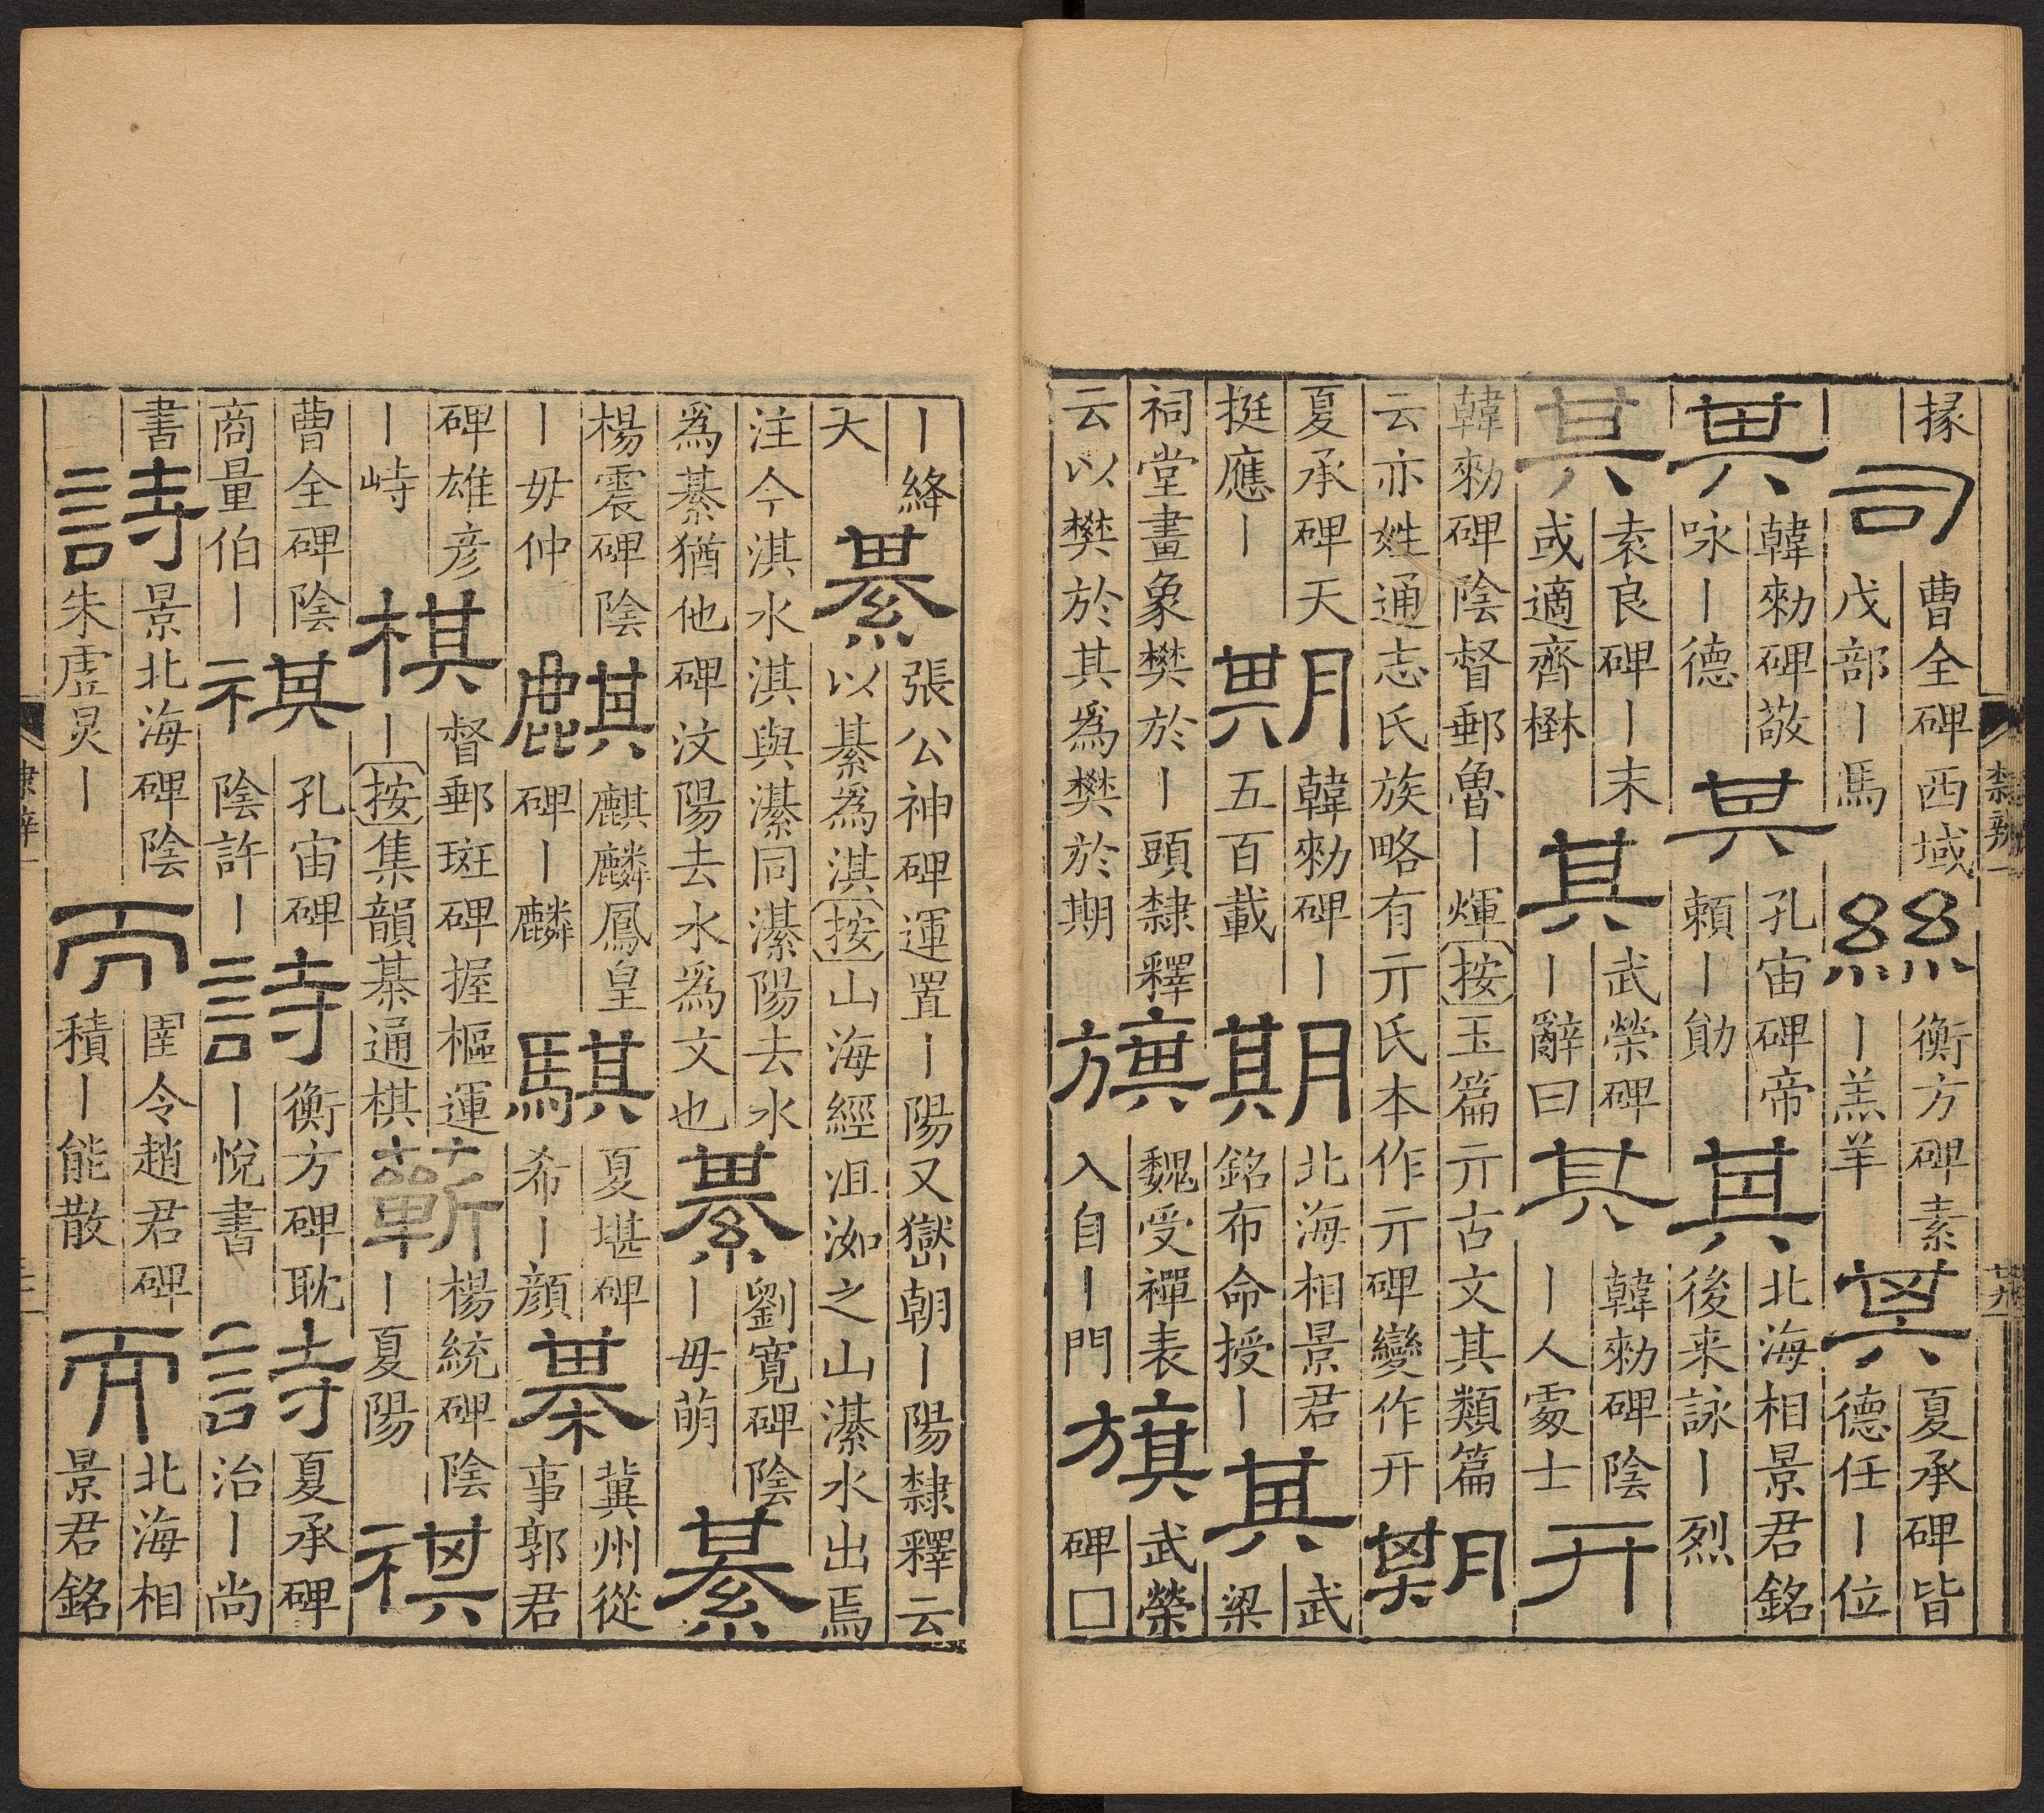 掾司曹全碑西域戊部｜馬絲衡方碑素｜羔羊其夏承碑皆德任｜位
其韓勑碑敬咏｜德其孔宙碑帝賴｜勛其北海相景君銘後来詠｜烈
其袁良碑｜末或適齊楙其武榮碑｜辭曰其韓勑碑陰｜人䖏士亓
韓勑碑陰督郵魯｜煇按玉篇亓古文其類篇云亦姓通志氏族略有亓氏本作亓碑變作开期
夏承碑天挺應｜期韓勑碑｜五百載期北海相景君銘布命授｜其武梁
祠堂畫象樊於｜頭隸釋云以樊於其為樊於期旗魏受禪表入自｜門旗武榮碑□
｜絳大綦張公神碑運置｜陽又嶽朝｜陽隸釋云以綦為淇按山海經沮洳之山濝水出焉
注今淇水淇與濝同濝陽去水為綦猶他碑汶陽去水為文也綦劉寬碑陰｜毋萌綦
楊震碑陰｜毋仲麒麒麟鳳皇碑｜麟騏夏堪碑希｜顔棊冀州從事郭君
碑雄彦｜峙棋督郵斑碑握樞運｜按集韻棊通棋蘄楊統碑陰｜夏陽祺
曹全碑陰商量伯｜祺孔宙碑陰許｜詩衡方碑耽｜悅書詩夏承碑治｜尚
書詩景北海碑陰朱虛炅｜而圉令趙君碑積｜能散而北海相景君銘
隸辨一
廿九